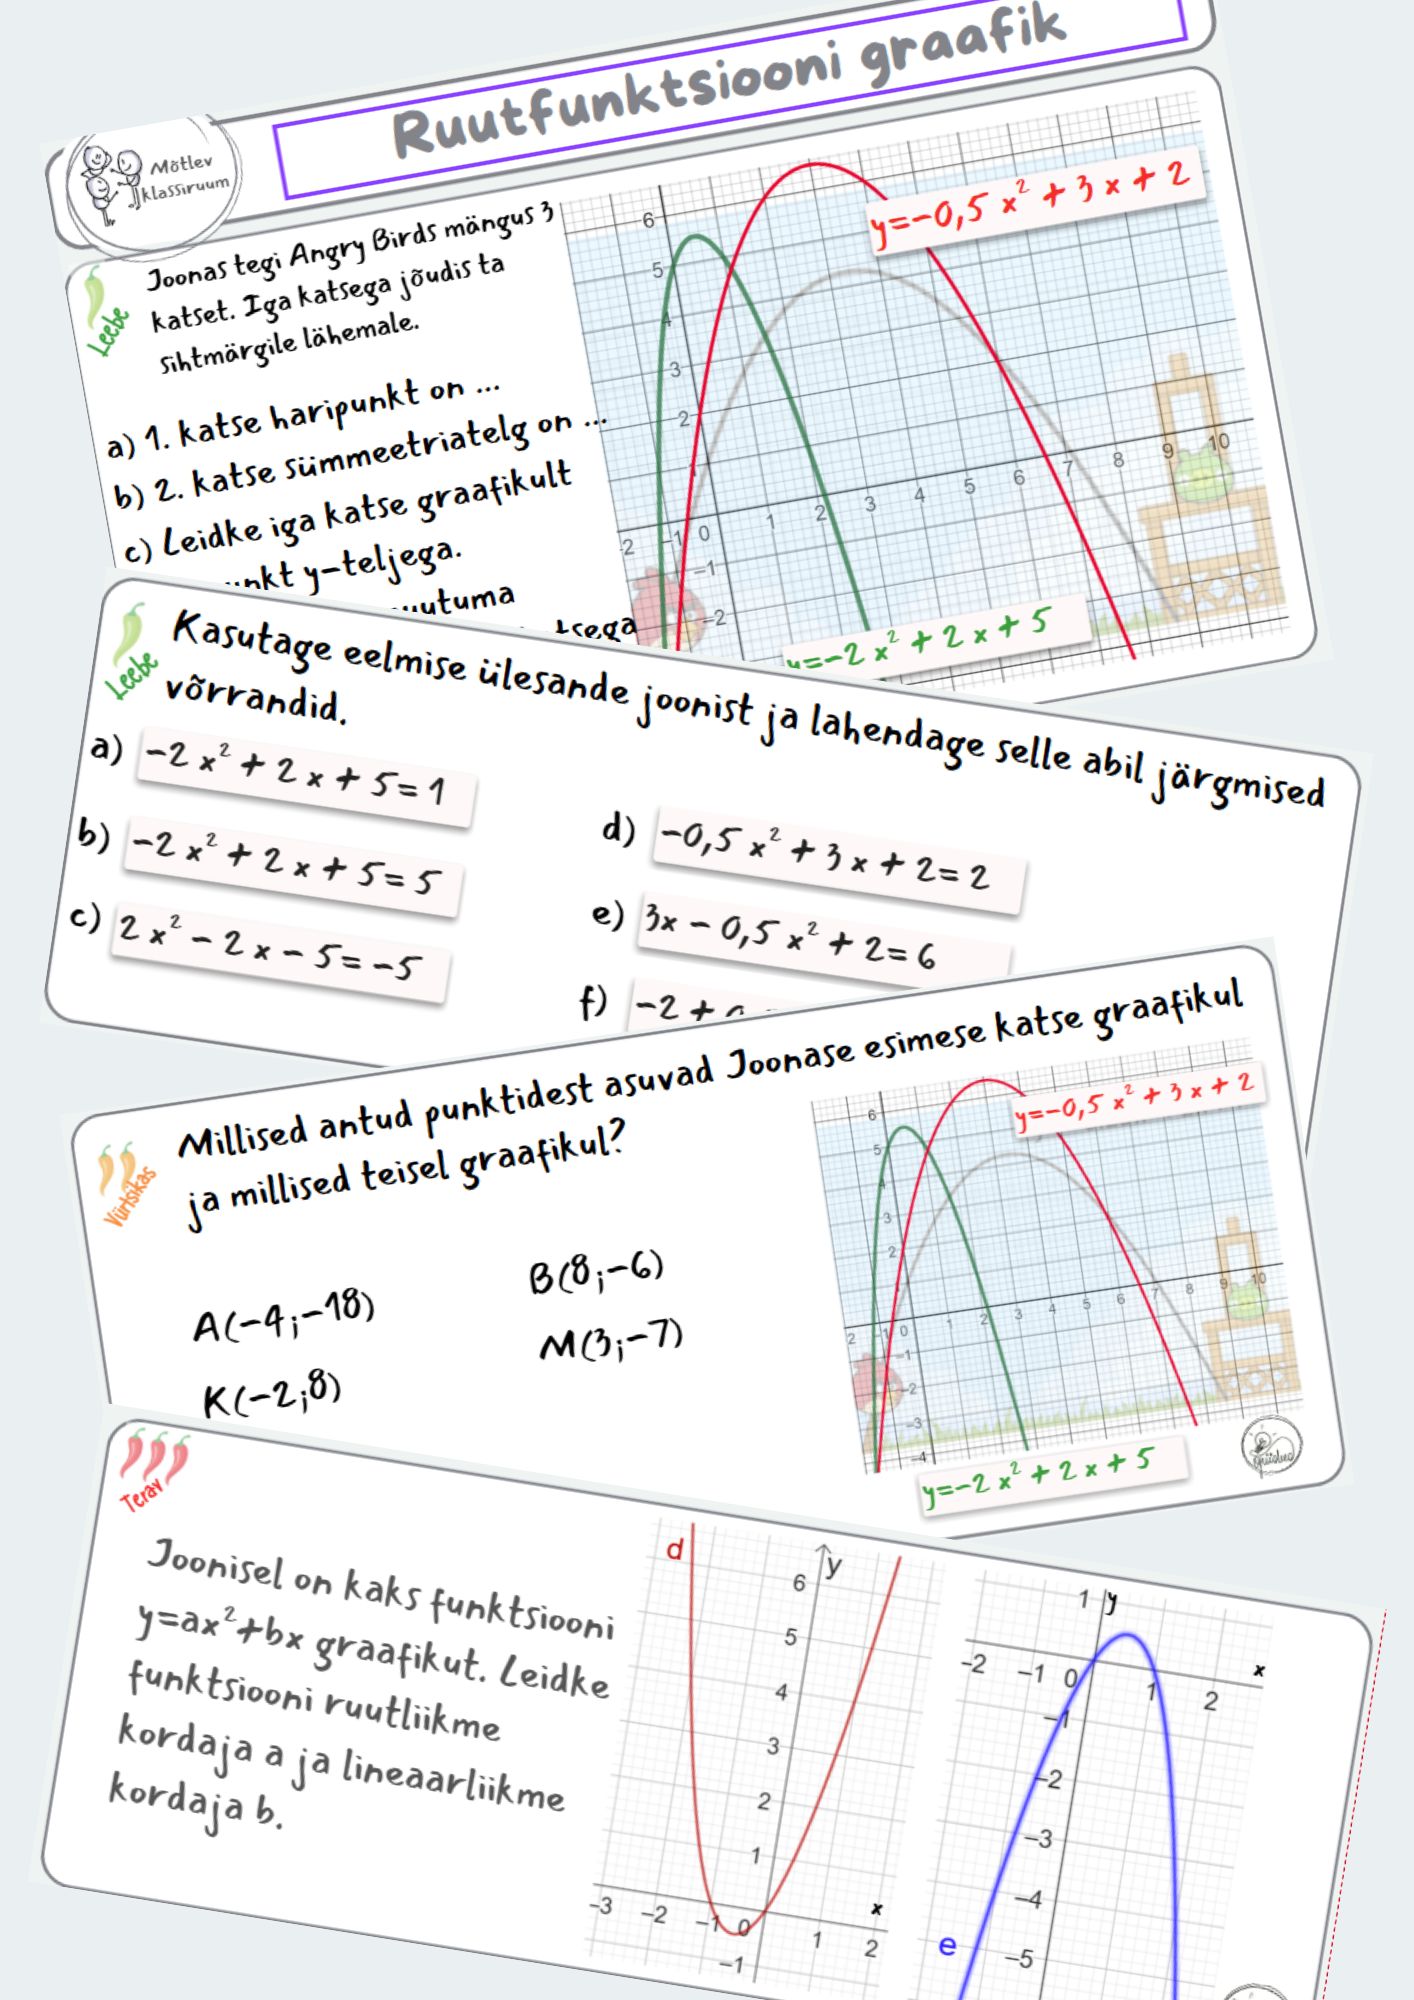 Ruutfunktsiooni graafik
Mõtlev
klassiruum
Leebe
Joonas tegi Angry Birds mängus 3
katset. Iga katsega jõudis ta
sihtmärgile lähemale.
a) 1. katse haripunkt on ...
b) 2. katse sümmeetriatelg on ...
c) Leidke iga katse graafikult
y-teljega.
y=-0,5 x² + 3 x + 2
6
5
4
3
2
1
-2 -1 0 1 2 3 4 5 6 7 8 9 10
-1
-2
y=-2 x² + 2 x + 5
Leebe
Kasutage eelmise ülesande joonist ja lahendage selle abil järgmised
võrrandid.
a) -2 x² + 2 x + 5 = 1
b) -2 x² + 2 x + 5 = 5
c) 2 x² - 2 x - 5 = -5
d) -0,5 x² + 3 x + 2 = 2
e) 3x - 0,5 x² + 2 = 6
f) -2 +
Vürtsikas
Millised antud punktidest asuvad Joonase esimese katse graafikul
ja millised teisel graafikul?
A(-4;-18)
B(8;-6)
K(-2;8)
M(3;-7)
y=-0,5 x² + 3 x + 2
6
5
4
3
2
1
2 -1 0 1 2 3 4 5 6 7 8 9 10
-1
-2
-3
-4
y=-2 x² + 2 x + 5
Terav
Joonisel on kaks funktsiooni
y=ax²+bx graafikut. Leidke
funktsiooni ruutliikme
kordaja a ja lineaarliikme
kordaja b.
d
y
6
5
4
3
2
1
x
-3 -2 -1 0 1 2
-1
1 y
-2 -1 0 1 2 x
-1
-2
-3
-4
-5
e